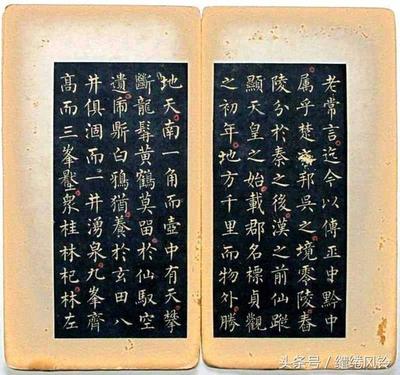 老常言迄今以傳正中黔中
属乎楚邦吳之境零陵春
陵分於秦之後漢之前仙蹤
顯天皇之始載郡名標貞觀
之初年地方千里而物外勝
地天南一角而壺中有天攀
斷龍髯黃鶴莫留於仙馭空
遺白鵶猶養於玄田八
井俱涸而一井湧泉九峯齊
高而三峯壓眾桂林杞林左
头条号／缱绻风铃